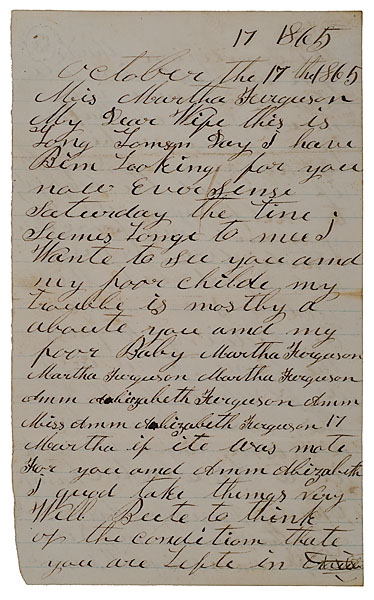 17 1865
October the 17 th 1865
Miss Martha Ferguson
My Dear Wife this is
Long Lomsn Day I have
Bin Looking for you
now Ever Sense
Saturday the time
Seemes Longe to mee I
Wante to See you amd
my poor childe my
trouble is mostby a
aboute you amd my
poor Baby Martha Ferguson
Martha Ferguson Martha Ferguson
Amm Alizabeth Ferguson Amm
Miss Amm Alizabeth Ferguson 17
Martha if ite was mote
For you amd Amm Alizabeth
I guod take things very
Well Beete to think
of the conditiom thate
you are Lefte in